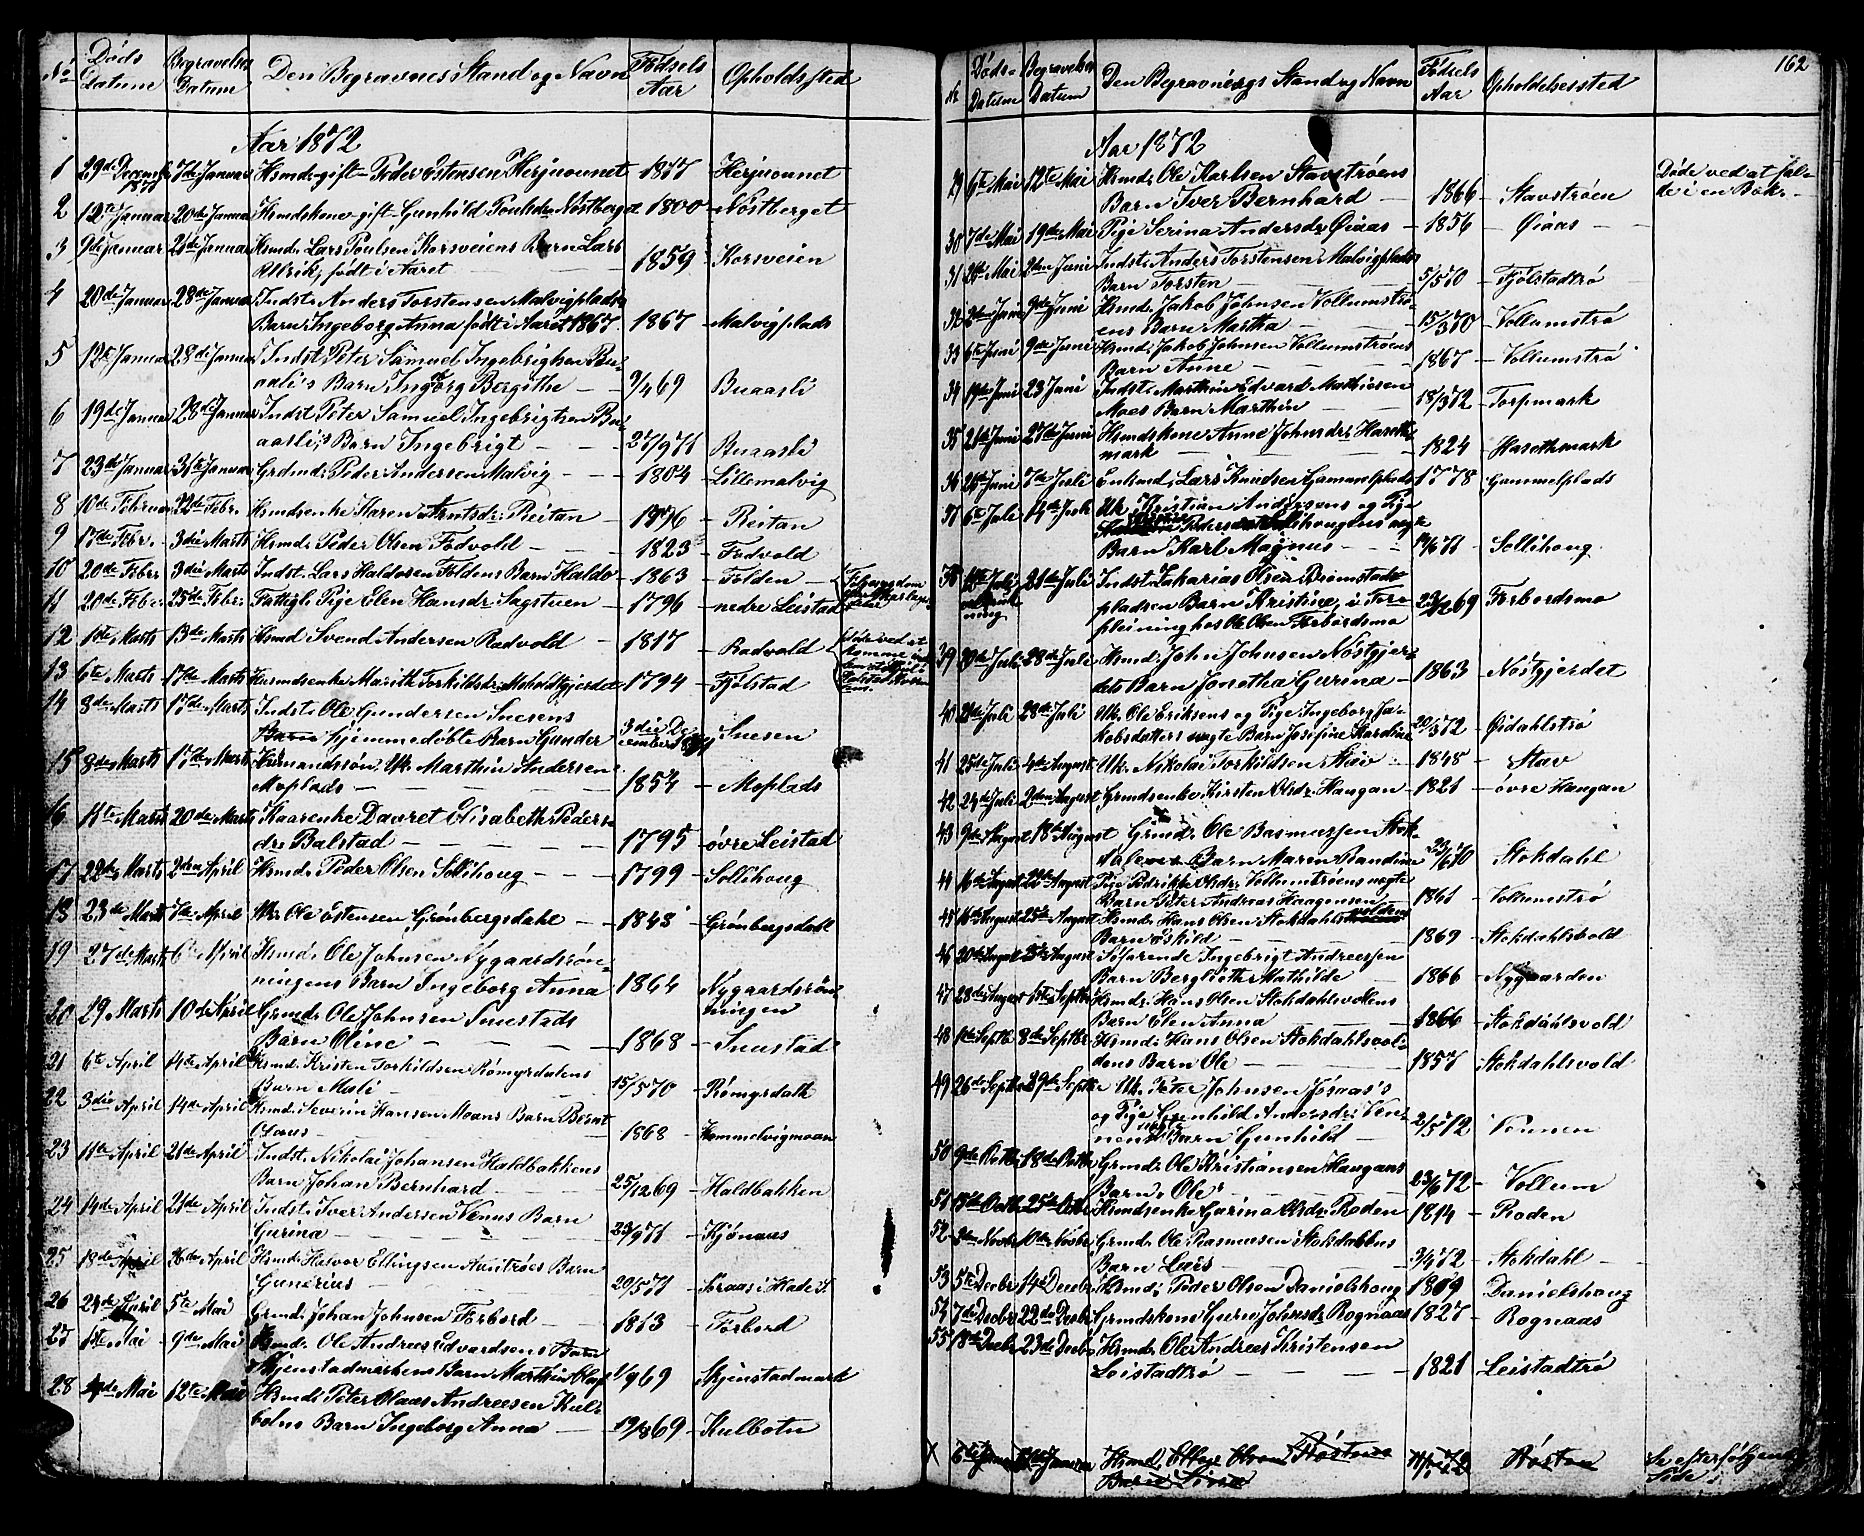 No Døds Datum Begravelses Datum Den Begravnes Stand og Navn Fødsels Aar Opholdssted
Aar 1872
1 29de Decemb. 1871 7de Januar Hsmd. gift Peder Estensen Herjuaunet 1817 Herjuaunet
2 12te Januar 20de Januar Husmdskone gift Gunhild Poulsdr. Nøstberget 1800 Nøstberget
3 9de Januar 21de Januar Hsmd. Lars Poulsen Korsveiens Barn Lars
Ullrik, født i Aaret 1859 Korsveien
4 20de Januar 28de Januar Indst. Anders Torstensen Malvigplads
Barn Ingeborg Anna født i Aaret 1867 1867 Malvigplads
5 12te Januar 28de Januar Indst. Peter Samuel Ingebrigtsen Bu-
aasli's Barn Ingeborg Bergithe 69 Buaasli
6 19de Januar 28de Januar Indst. Peter Samuel Ingebrigtsen Bu-
aasli's Barn Ingebrigt 27/9 71 Buaasli
7 23de Januar 31te Januar Grdmd. Peder Andersen Malvig 1804 Lillemalvig
8 10de Februar 22de Febr. Hsmdsenke Karen Arntsdr. Reitan 1796 Reitan
9 17de Febr. 3die Marts Hsmd. Peder Olsen Fodvold 1823 Fodvold
10 20de Febr. 3die Marts Indst. Lars Haldosen Foldens Barn Haldo 1863 Folden
11 20de Febr. 25de Febr. Fattigl. Pige Elen Hansdr. Sagstuen 1796 nedre Leistad
12 1ste Marts 13de Marts Hsmd. Svend Andersen Rødvold 1817 Rødvold
13 6te Marts 17de Marts Husmdsenke Marith Torkildsdr. Moholtgjerdet 1794 Fjølstad
14 8de Marts 17de Marts Indst. Ole Gundersen Snesens
Barn hjemmedøbte Barn Gunder 3die December 1871 Snesen
15 8de Marts 17de Marts Husmandssøn Uk. Marthin Andersen
Moplads 1854 Moplads
16 11te Marts 20de Marts Kaarenke Davret Elisabeth Peders-
dr. Balstad 1795 øvre Leistad
17 22de Marts 2den April Hsmd. Peder Olsen Sollihoug 1799 Sollihoug
18 23de Marts 7de April Uk. Ole Østensen Grønbergsdahl 1848 Grønbergsdahl
19 27de Marts 6te April Hsmd. Ole Johnsen Nygaardsrøn-
ningens Barn Ingeborg Anna 1864 Nygaardsrøn-
ningen
20 29 Marts 10de April Grmd. Ole Johnsen Snustads
Barn Oline 1868 Snustad
21 6te April 14te April Hsmd. Kristen Torkildsen Rømyrdalens
Barn Mali 15/5 70 Rømyrdalh
22 3die April 14de April Hsmd. Severin Hansen Moans Barn Bernt
Claus 1868 Hommelvigmoan
23 11te April 21de April Indst. Nikolai Johansen Haldbakkens
Barn Johan Bernhard 25/12 69 Haldbakken
24 14de April 21de April Indst. Iver Andersen Venus Barn
Gurina 23/9 71 Kjønaas
25 18de April 26de April Hsmd. Halvor Ellingsen Barn
Gunerius 20/5 71
26 24de April 5te Mai Grmd. Johan Johnsen Forbord 1813 Forbord
27 1ste Mai 9de Mai Hsmd. Ole Andreas Edvardsens Barn
Skjenstadmarkens Barn Marthin Olaf 69 Skjenstadmark
28 4de Mai 12te Mai Hsmd. Peter Claus Andreesen Kul-
botns Barn Ingeborg Anna 19/8 69 Kulbotn
162
Nr. Døds- Datum Begravelses Datum Den Begravnes Stand og Navn Fødsels Aar Opholdelsessted
Aar 1872
29 6te Mai 12te Mai Hsmd. Ole Karlsen Stavstrøens
Barn Iver Bernhard 1866 Stavstrøen
Døde ved at fal-
de i en
30 7de Mai 19de Mai Pige Serina Andersdr. Øiaas 1856 Øiaas
31 26de Mai 2den Juni Indst. Anders Torstensen Malvigplads
Barn Torsten 5/5 70 Fjølstadtrø
32 2den Juni 9de Juni Hsmd. Jakob Johnsen Vollumstrø-
ens Barn Martha 15/3 70 Vollumstrø
33 6te Juni 9de Juni Hsmd. Jakob Johnsen Vollumstrøens
Barn Anne 1867 Vollumstrø
34 19de Juni 23 Juni Indst. Marthin Edvard Mathiesen
Moes Barn Marthin 18/3 72 Torpmark
35 21de Juni 27de Juni Hsmdskone Anne Johnsdr. Haseth-
mark 1824 Hasethmark
36 26de Juni 7de Juli Enkmd. Lars Knudsen Gammelplads 1778 Gammelplads
37 6te Juli 14de Juli Uk. Kristian Andersens og Pige
Pedersdatter Sollihougens uægte
Barn Karl Magnus 71 Sollihoug
38 21de Juli Indst. Zakarias Olsen Brimstad-
pladsen Barn Kristine, i For-
pleining hos Ole Olsen Forbordsmo 69 Forbordsmo
39 28de Juli Hsmd. John Johnsen Nøstgjer-
dets Barn Jonetha Gurina 1863 Nøstgjerdet
40 21de Juli 28de Juli Uk. Ole Eriksens og Pige Ingeborg Ja-
kobsdatters uægte Barn Josefine Kardine 20/3 72 Øidahlstrø
41 25de Juli 4de August Uk. Nikolai Torkildsen Stav 1848 Stav
42 24de Juli 2den August Grmdsenke Kirsten Olsdr. Haugan 1821 øvre Haugan
43 9de August 18de August Grmd. Ole Rasmussen Stok-
dalens Barn Maren Randine 70 Stokdahl
44 16de August August Pige Pedrikke Olsdr. Vollumtrøens uægte
Barn Peter Andreas Haagensen 1861 Vollumstrø
45 16de August 25de August Hsmd. Hans Olsen Stokdahlsvoldens
Barn Eskild 1869 Stokdahlsvold
46 20de August 25de August Søfarende Ingebrigt Andreesen
Barn Bergliotte Mathilde 1866 Nygaarden
47 28de August 1ste Septbr. Hsmd. Hans Olsen Stokdahlsvollens
Barn Elen Anna 1866 Stokdahlsvold
48 1ste Septbr 8de Septbr. Hsmd. Hans Olsen Stokdahlsvol-
dens Barn Ole 1857 Stokdahlsvold
49 26de Septbr 29de Septbr Uk. Peter Johnsen
og Pige Gunhild Andersdr. Ven-
nens uægte Barn Gunhild 2/5 72 Vennen
50 9de Octbr. 18de Octbr. Grmd. Ole Kristiansen Haugans
Barn Ole 23/6 72 Vollum
51 17de Octbr. 25de Octbr. Husmdsenke Gurina Olsdr. Roden 1814 Roden
52 3de Novbr 10de Novbr. Grmd. Ole Rasmussen Stokdahlens
Barn Lars 72 Stokdahl
53 5te Decbr 14de Decbr Hsmd. Peder Olsen Danielshoug 1809 Danielshoug
54 7de Decbr 22de Decbr Grmdskone Guru Johnsdr. Rognaas 1827 Rognaas
55 18de Decbr 23de Decbr Hsmd. Ole Andreas Kristensen
Leistadtrø 1821 Leistadtrø
X 6te Januar Januar Hsmd. Røsten
Barn 72 Røsten
Se efterfølgende
Side